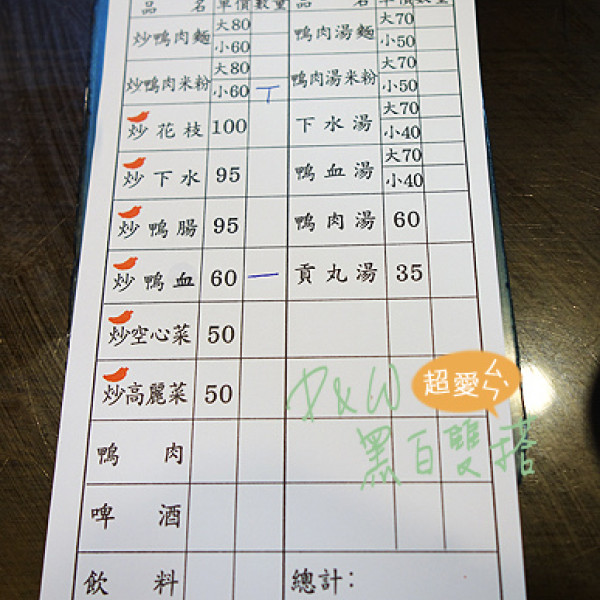 品 名 單價 數量 品 名 單價 數量
炒鴨肉麵 大80 小60 鴨肉湯麵 大70 小50
炒鴨肉米粉 大80 小60 丅 鴨肉湯米粉 大70 小50
炒花枝 100 下水湯 大70 小40
炒下水 95 鴨血湯 大70 小40
炒鴨腸 95 鴨肉湯 60
炒鴨血 60 一 貢丸湯 35
炒空心菜 50
炒高麗菜 50
鴨肉
啤酒
飲料 總計:
超愛ㄙㄙ
黑白雙搭